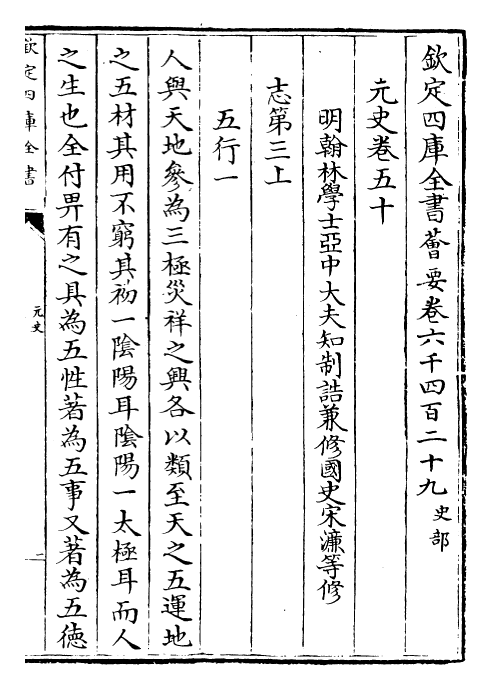 欽定四庫全書薈要卷六千四百二十九 史部
元史卷五十
明翰林學士亞中大夫知制誥兼修國史宋濂等修
志第三上
五行一
人與天地參為三極災祥之興各以類至天之五運地
之五材其用不窮其初一陰陽耳陰陽一太極耳而人
之生也全付畀有之具為五性著為五事又著為五德
欽定四庫全書
元史